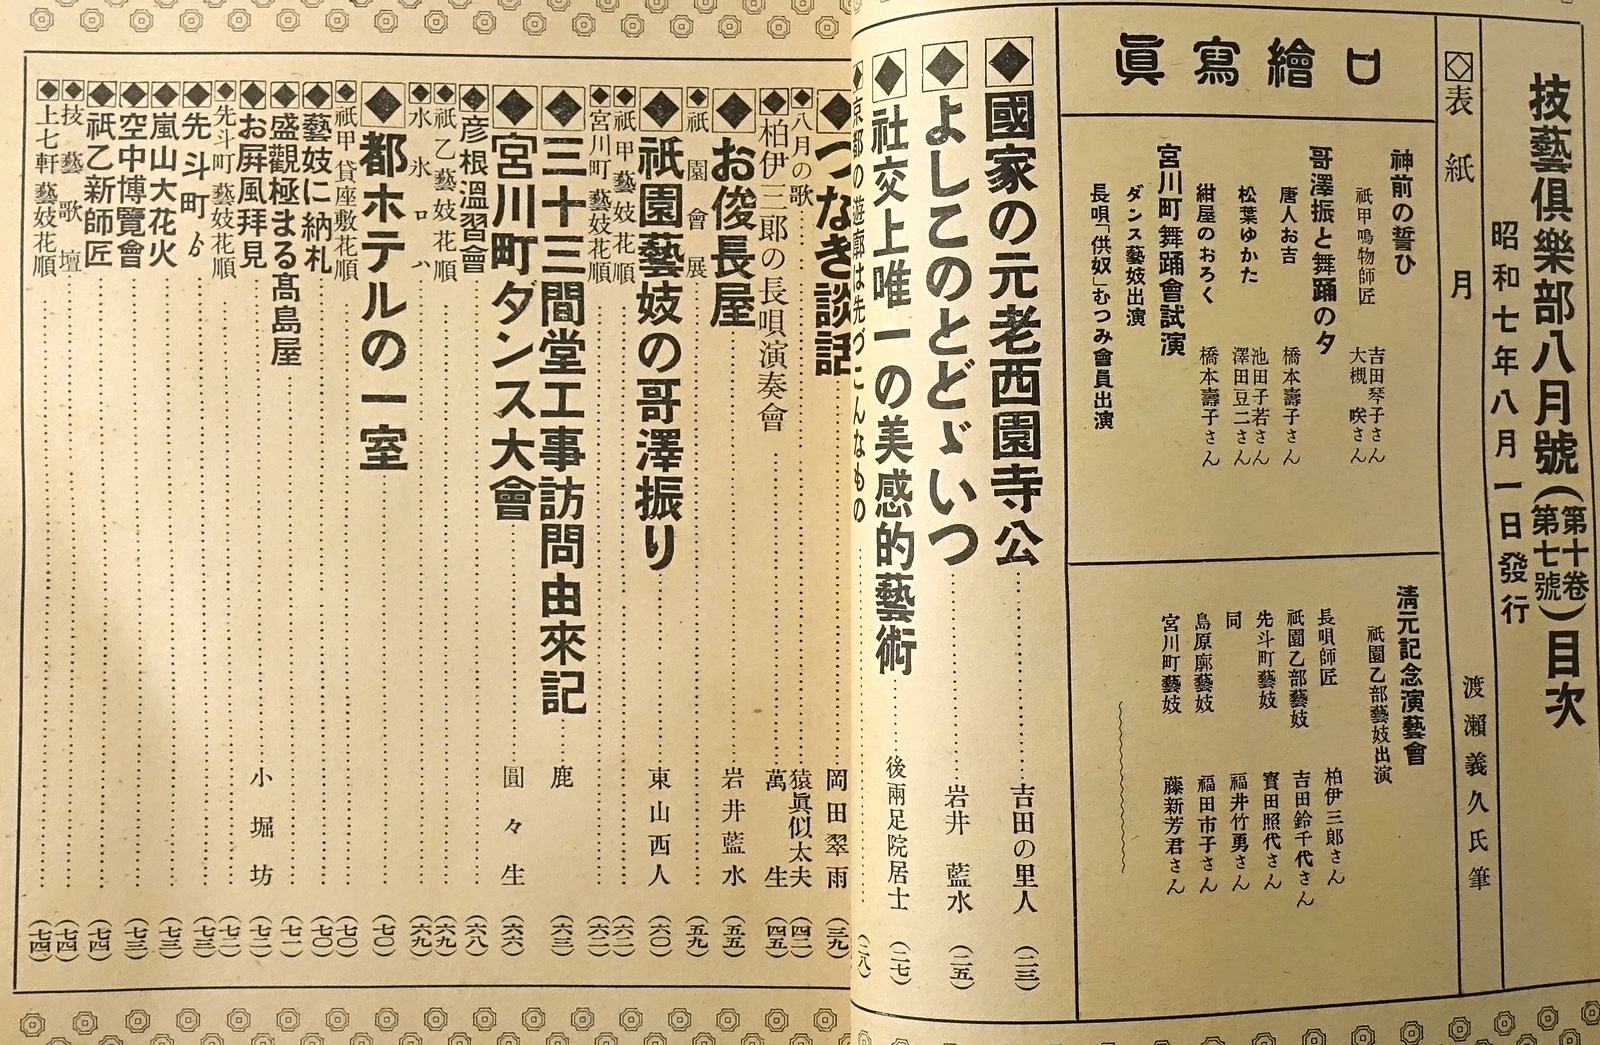 技藝倶樂部八月號(第十卷第七號)目次
昭和七年八月一日發行
表紙 月 渡瀨義久氏筆
口繪寫眞
神前の誓ひ
祇甲鳴物師匠 吉田琴子さん
大槻 咲さん
哥澤振と舞踊の夕
唐人お吉 橋本壽子さん
松葉ゆかた 池田子若さん
澤田豆二さん
紺屋のおろく 橋本壽子さん
宮川町舞踊會試演
ダンス藝妓出演
長唄「供奴」むつみ會員出演
淸元記念演藝會
祇園乙部藝妓出演
長唄師匠 柏伊三郎さん
祇園乙部藝妓 吉田鈴千代さん
先斗町藝妓 寳田照代さん
同 福井竹勇さん
島原廓藝妓 福田市子さん
宮川町藝妓 藤新芳君さん
國家の元老西園寺公 吉田の里人 (二三)
よしこのとどゞいつ 岩井藍水 (二五)
社交上唯一の美感的藝術 後兩足院居士 (二七)
京都の遊廓は先づこんなもの (二八)
つなぎ談話 岡田翠雨 (三九)
八月の歌 猿眞似太夫 (四二)
柏伊三郎の長唄演奏會 萬生 (四五)
お俊長屋 岩井藍水 (五五)
祇園會展 (五九)
祇園藝妓の哥澤振り 東山西人 (六〇)
祇甲藝妓花順 (六二)
宮川町藝妓花順 (六二)
三十三間堂工事訪問由來記 鹿 (六三)
宮川町ダンス大會 圓々生 (六六)
彦根溫習會 (六八)
祇乙藝妓花順 (六九)
水氷ロハ (六九)
都ホテルの一室 (七〇)
祇甲貸座敷花順 (七〇)
藝妓に納札 (七〇)
盛觀極まる髙島屋 (七一)
お屏風拜見 小堀坊 (七二)
先斗町藝妓花順 (七二)
先斗町 (七三)
嵐山大花火 (七三)
空中博覽會 (七三)
祇乙新師匠 (七四)
技藝歌壇 (七四)
上七軒藝妓花順 (七四)